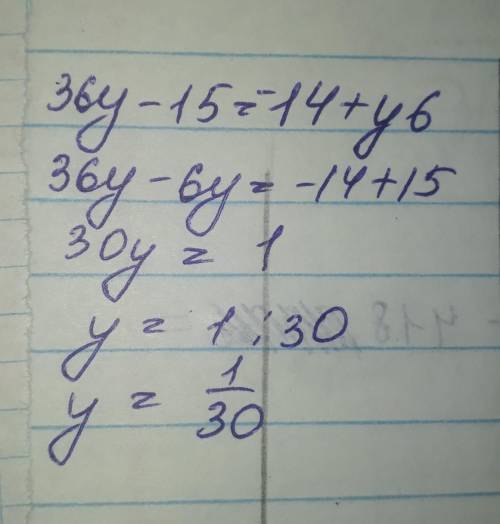 36y - 15 = -14 + y6
36y - 6y = -14 + 15
30y = 1
y = 1 : 30
y = 1/30